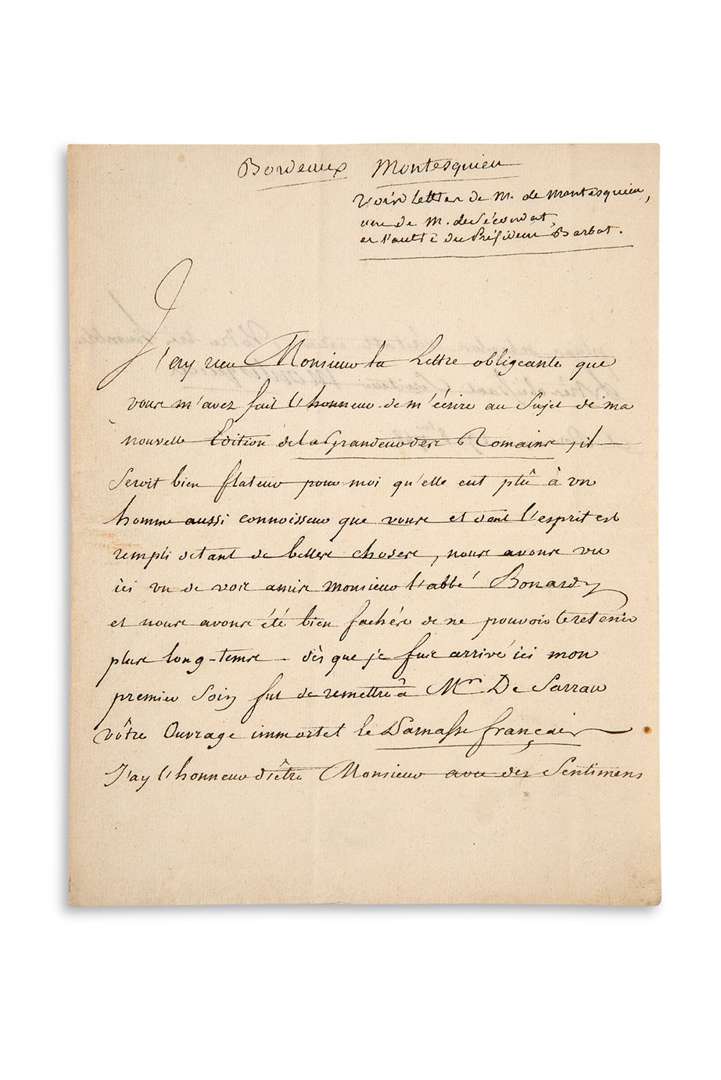 Bordeaux Montesquieu
voir Letter de M. de Montesquieu,
une de M. de Sécondat,
et l'autre du Président Barbot.
J'ay reçu Monsieur la Lettre obligeante que
vous m'avez fait l'honneur de m'écrire au Sujet de ma
nouvelle Edition de la Grandeur des Romains, il
Seroit bien flateur pour moi qu'elle eut plû à vn
homme aussi connoisseur que vous et dont l'esprit est
rempli de tant de belles choses, nous avons vu
ici vn de vos amis monsieur l'abbé Bonardy
et nous avons été bien fachés de ne pouvoir le retenir
plus long-tems - dès que je fus arrivé ici mon
premier Soin fut de remettre à Mr. De Sarrau
vôtre Ouvrage immortel le Parnasse français
J'ay l'honneur d'être Monsieur avec des Sentimens